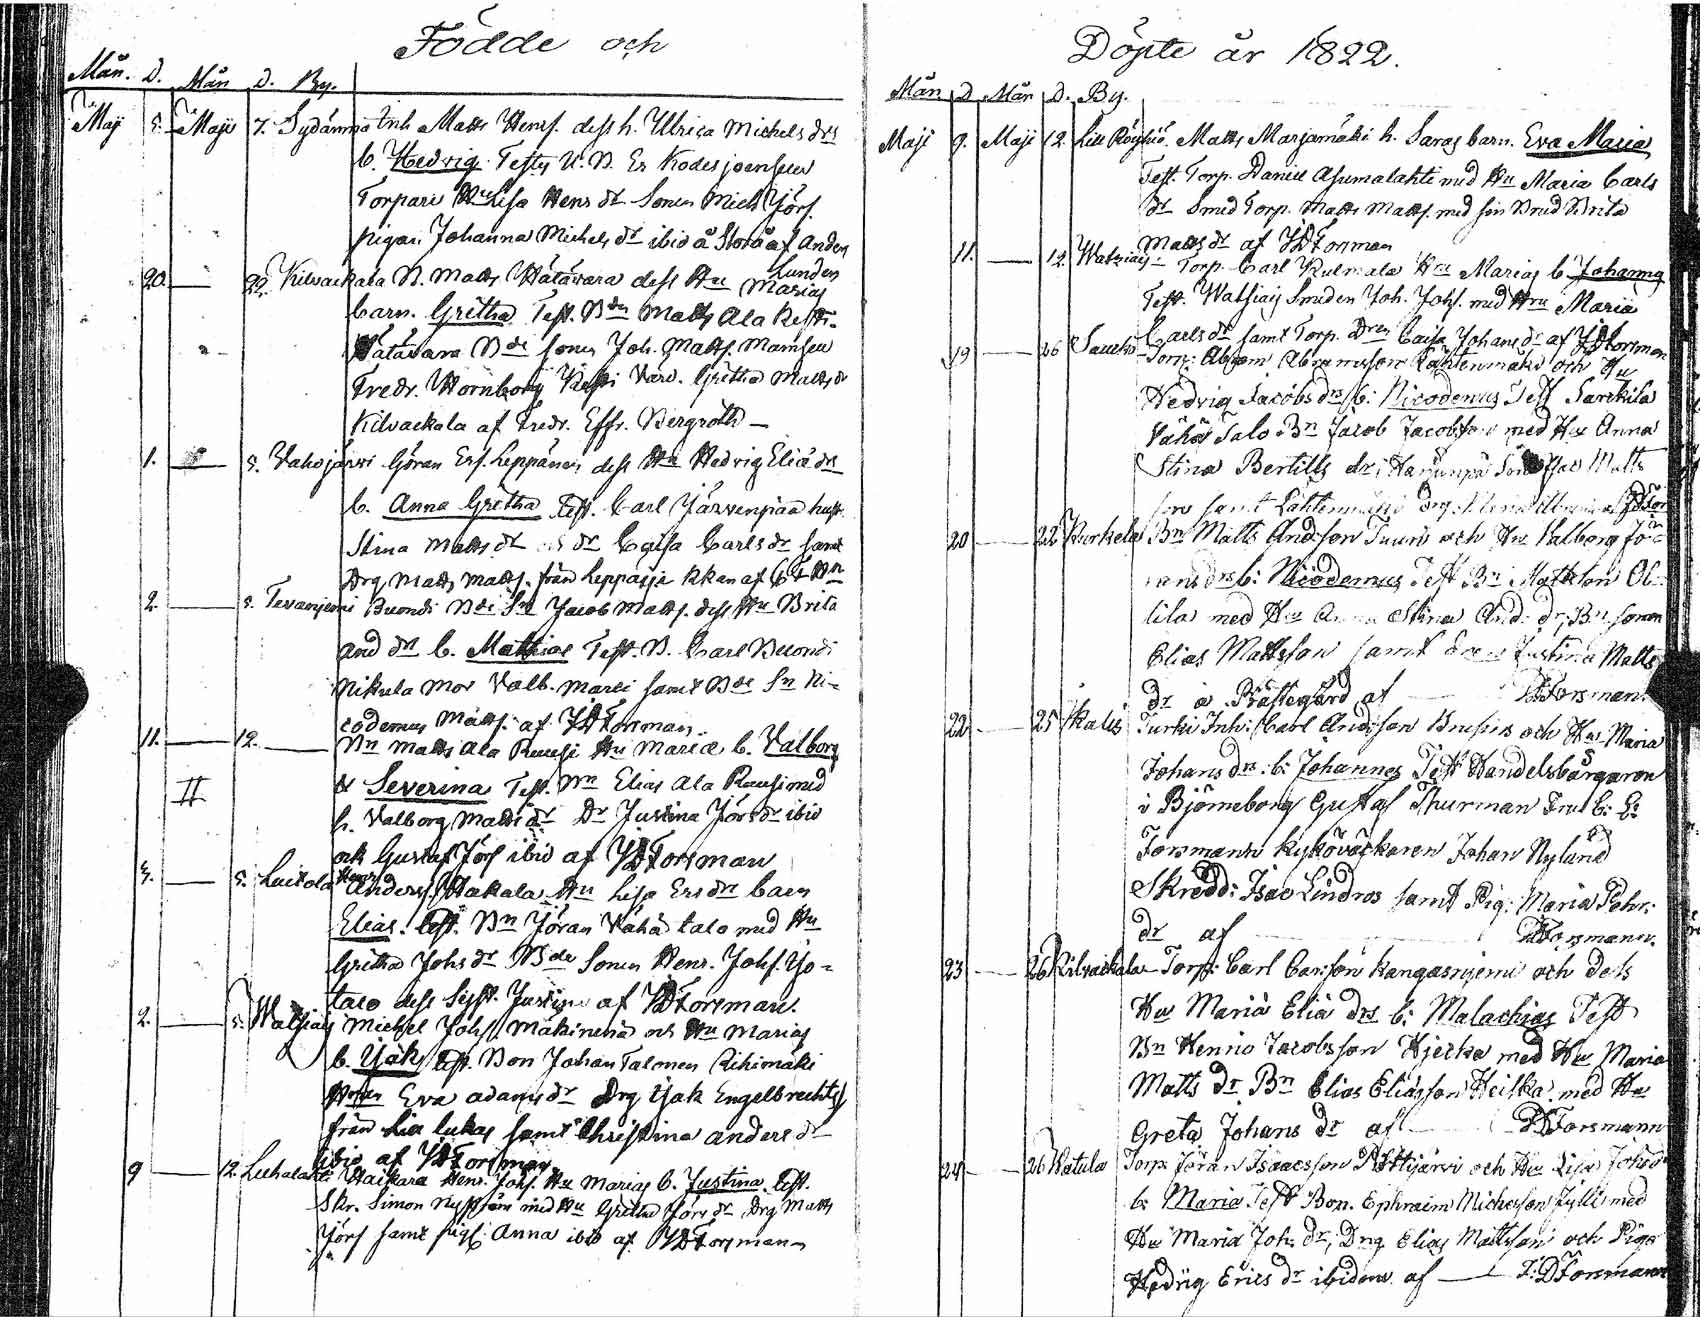 Födde och
Mån. D. Mån D. By.
Maji 5. Maji 7. Sydänma Inh Matts Henrs. dess h. Ulrica Michels drs
b. Hedvig. Test. N. B. Er Kodesjoensuu
Torpare Hu Lisa Henrs dr Sonen Mich Jörs.
pigan Johanna Michels dr ibid å Storå af Anders
Lunden
20. — 22. Kilvackala N. Matts Hätävara dess Hu Marias
barn. Gretha Test. Bdn Matts Ala Kesti
Hätävara Bde sonen Joh. Matts. Mamsen
Fredr. Hornborg Kesti Vard. Gretha Matts dr
Kilvackala af Fredr. Eff. Bergroth —
1. — 5. Vahojärvi Göran Ers. Leppänen dess Hu Hedvig Eliæ dr
b. Anna Gretha Test. Carl Järvenpää hust.
Stina Matts dr och dr Caisa Carls dr samt
Drg Matts Matts. från Leppäsja
2. — 5. Tevanjemi Buondi Bde Sn Jacob Matts. dess Hu Brita
And dr b. Matthias Test. B. Carl Buondi
Nikula mor Valb. Marci samt Bde Sn Ni-
codemus Matts. af JD Forsman.
11. — 12. — Bn Matts Ala Reuesi Hu Maria b. Valborg
II & Severina Test. Bn Elias Ala Reuesi med
h. Valborg Matts dr Dr Justina Jörs dr ibid
och Gustaf Jörs ibid af JD Forsman
3. — 5. Luikola Anders Henrs Hakala Hu Lisa Ers dr barn
Elias. Test. Bn Jöran Vähä talo med Hu
Gretha Johs dr Bde Sonen Henr. Johs. Yo-
talo dess Syst. Justina af JD Forsman.
2. — 5. Watsiais Michel Johs. Mäkinenä och Hu Marias
b. Isak Test. Bon Johan Talonen Rihimäki
Hustrun Eva Adams dr Drg Isak Engelbrechts
från samt Christina Anders dr
ibid af JD Forsman
9 — 12. Luhalahti Haikara Henr. Johs. Hu Marias b. Justina Test.
Skr. Simon Nyström med Hu Gretha Jörs dr Drg Matts
Jörs samt pig. Anna ibid af JD Forsman
Döpte år 1822.
Mån D Mån D. By.
Maji 9. Maji 12. Lill Röyhiö. Matts Marjamäki h. Saras barn. Eva Maria
Test. Torp. Daniel Asumalahti med Hu Maria Carls
dr Smed Torp. Matts Matts. med sin Brud Brita
Matts dr af JD Forsman
11. — 12. Watsiais Torp. Carl Kulmala Hu Marias b Johanna
Test. Watsiais Smeden Joh. Johs. med Hru Maria
Carls dr samt Torp. Dren Caisa Johans dr af JD Forsman
19 — 26 Torp: Abram Abramsson Lähtenmäki och Hu
Hedvig Jacobs drs b: Nicodemus Test Sarckila
Vähä Talo Bn Jacob Jacobsson med Hu Anna
Stina Bertills dr; Harjunpä Son Isac Matts
son samt Lähtenmäki drg
20 — 22 Kurkela Bn Matts Andsson Tuuri och Hu Valborg Jö-
rans drs b: Nicodemus Test Bn Mattson Ol-
lila med Hu Anna Stina And. dr; Bn sonen
Elias Mattsson samt Justina Matts
dr å Prästegård af — JD Forsman.
22 — 25 Ikalis Turki Inh: Carl Andsson Brusiis och Hu Maria
Johans drs: b: Johannes Test Handelsborgaren
i Björneborg Gustaf Thurman Fru C: L:
Forsmann Kyrkoväckaren Johan Nylund
Skredd: Isac Lindros samt Pig: Maria Pehr:
dr af — JD Forsmann.
23 — 26 Kilvackala Torp. Carl Carsson Kangasnjemi och dels
Hu Maria Eliæ drs b: Malachias Test
Bn Henric Jacobsson Hjerka med Hu Maria
Matts dr Bn Elias Eliasson Heiska med Hu
Greta Johans dr af — JD Forsmann
24 — 26 Vatula Torp Jöran Isaacsson och Hu Lisa Johs dr
b: Maria Test Bon. Ephraim Michelsson Jylli med
Hu Maria Joh: dr; Dng Elias Mattsson och Piga
Hedvig Erics dr ibidem af — J: D Forsmann